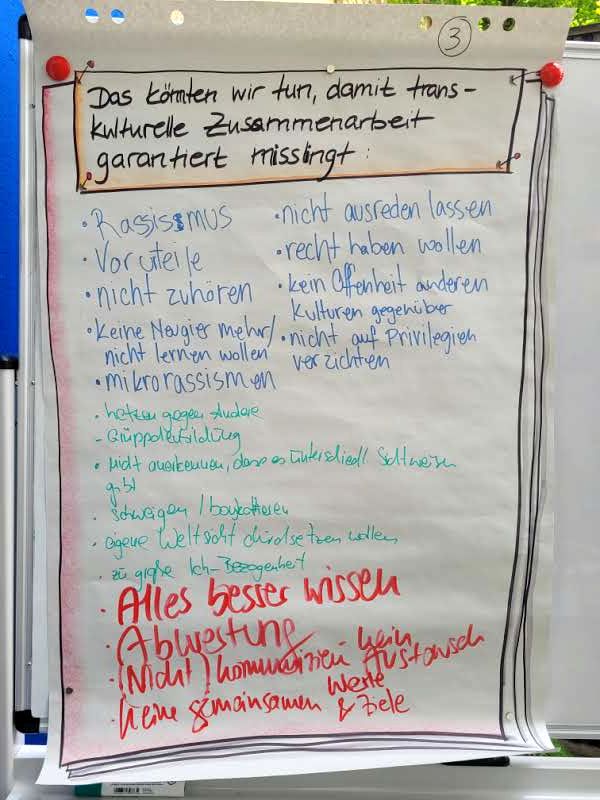 3
Das könnten wir tun, damit trans-
kulturelle Zusammenarbeit
garantiert misslingt:
• Rassismus
• Vorurteile
• nicht zuhören
• Keine Neugier mehr/
nicht lernen wollen
• mikrorassismen
• nicht ausreden lassen
• recht haben wollen
• kein Offenheit anderen
Kulturen gegenüber
• nicht auf Privilegien
verzichten
• hetzen gegen Andere
- Grüppchenbildung
• nicht anerkennen, dass es unterschiedl. Sichtweisen
gibt
• schweigen / boykottieren
• eigene Weltsicht durchsetzen wollen
• zu große Ich-Bezogenheit
• Alles besser wissen
• Abwertung
• (Nicht) kommunizieren - kein Austausch
• keine gemeinsamen Werte
& Ziele